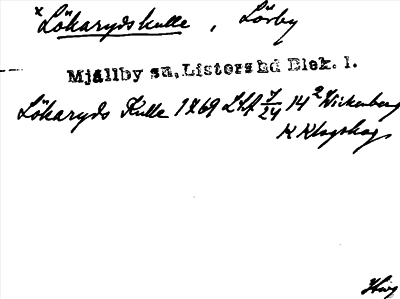 x Lökarydskulle, Lörby
Mjällby sn, Listers hd Blek. l.
Lökaryds Kulle 1869 LSA 7/24 14 2 Wickenberg
K Klagskog